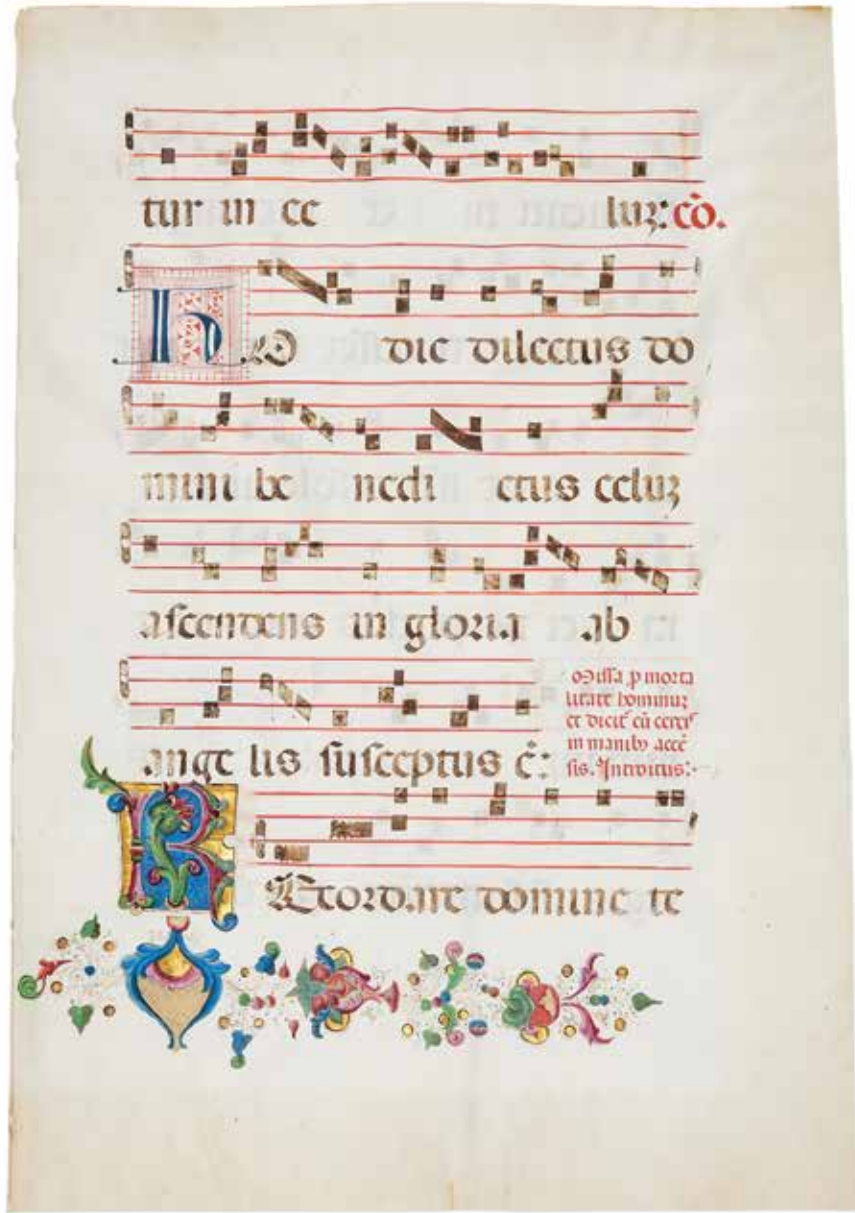 tur in ce luz: cō.
HO die dilectus do
mini be nedi ctus celuz
ascendens in gloria ab
ange lis susceptus ē:
Missa p morta
litate hominuz
et dicit cū cereis
in manib accē
sis. Introitus:
REcordare domine te